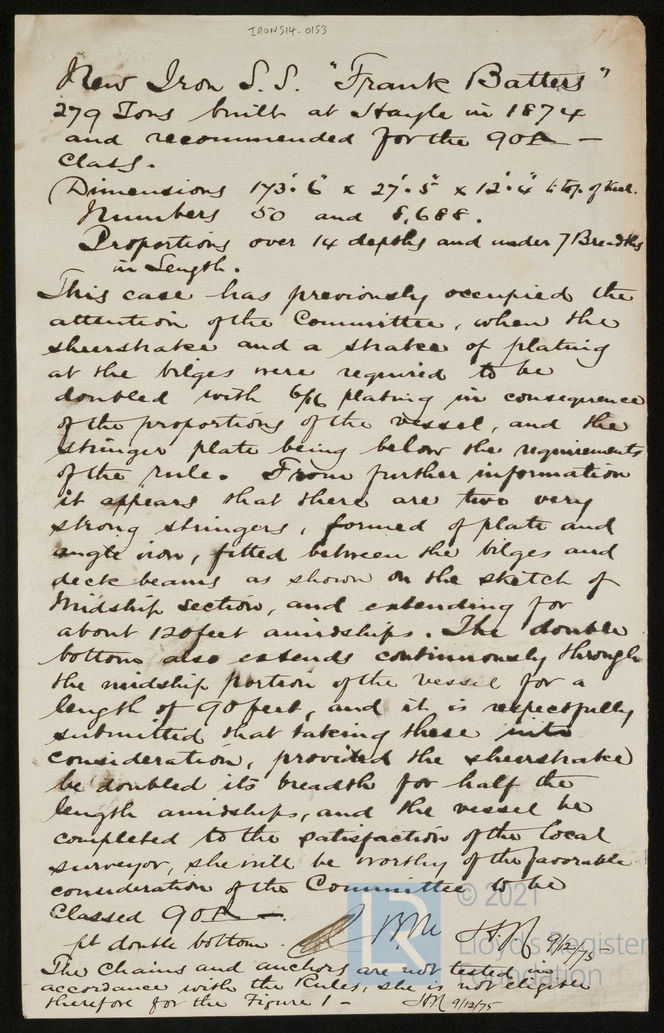 IRONS14-0153
New Iron S.S. "Frank Batters"
279 Tons built at Hayle in 1874
and recommended for the 90A —
Class.
Dimensions 173'.6" x 27'.5" x 12'.4" to top of keel.
Numbers 50 and 8,688.
Proportions over 14 depths and under 7 Breadths
in Length.
This case has previously occupied the
attention of the Committee, when the
sheerstrake and a strake of plating
at the bilges were required to be
doubled with 6/16 plating in consequence
of the proportions of the vessel, and the
stringer plate being below the requirements
of the rule. From further information
it appears that there are two very
strong stringers, formed of plate and
angle iron, fitted between the bilges and
deck beams as shown on the sketch of
Midship section, and extending for
about 120 feet amidships. The double
bottom also extends continuously through
the midship portion of the vessel for a
length of 90 feet, and it is respectfully
submitted that taking these into
consideration, provided the sheerstrake
be doubled its breadth for half the
length amidships, and the vessel be
completed to the satisfaction of the local
surveyor, she will be worthy of the favorable
consideration of the Committee to be
Classed 90A —.
pt double bottom. 9/12/75
The Chains and anchors are not tested in
accordance with the Rules, she is not eligible
therefore for the Figure 1 — 9/12/75
© 2021
Lloyd's Register
Foundation
LR